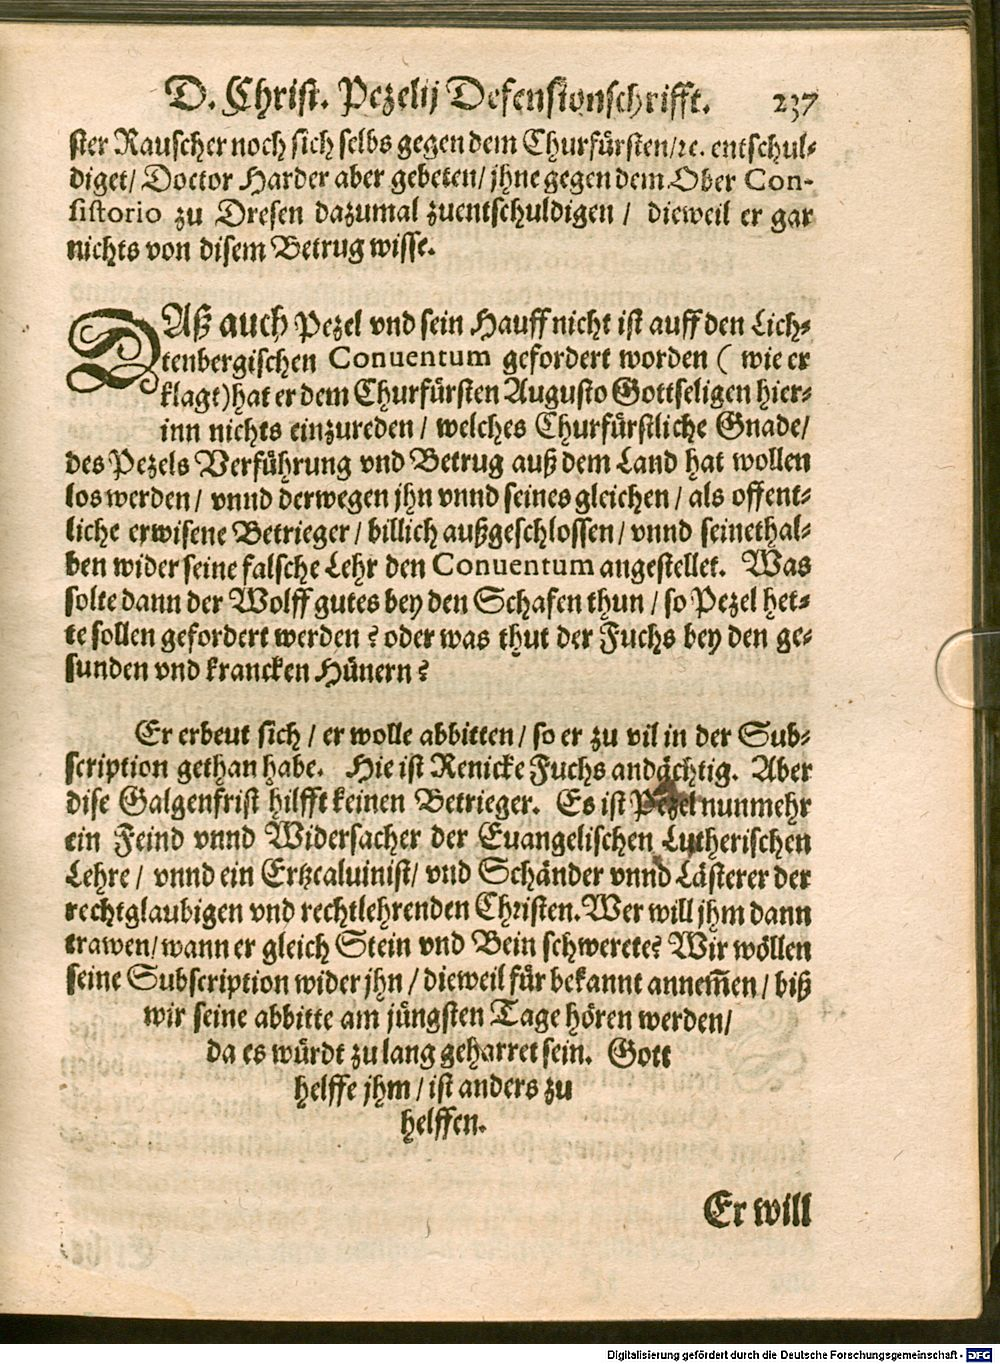 D. Christ. Pezelij Defensionschrifft. 237
ster Rauscher noch sich selbs gegen dem Churfürsten/ꝛc. entschul-
diget/ Doctor Harder aber gebeten/ jhne gegen dem Ober Con-
sistorio zu Dresen dazumal zuentschuldigen / dieweil er gar
nichts von disem Betrug wisse.
DAß auch Pezel vnd sein Hauff nicht ist auff den Lich-
tenbergischen Conuentum gefordert worden ( wie er
klagt) hat er dem Churfürsten Augusto Gottseligen hier-
inn nichts einzureden / welches Churfürstliche Gnade/
des Pezels Verführung vnd Betrug auß dem Land hat wollen
los werden / vnnd derwegen jhn vnnd seines gleichen / als offent-
liche erwisene Betrieger / billich außgeschlossen / vnnd seinethal-
ben wider seine falsche Lehr den Conuentum angestellet. Was
solte dann der Wolff gutes bey den Schafen thun / so Pezel het-
te sollen gefordert werden ? oder was thut der Fuchs bey den ge-
sunden vnd krancken Hünern ?
Er erbeut sich / er wolle abbitten / so er zu vil in der Sub-
scription gethan habe. Hie ist Renicke Fuchs andächtig. Aber
dise Galgenfrist hilfft keinen Betrieger. Es ist Pezel nunmehr
ein Feind vnnd Widersacher der Euangelischen Lutherischen
Lehre / vnnd ein Ertzcaluinist/ vnd Schänder vnnd Lästerer der
rechtglaubigen vnd rechtlehrenden Christen. Wer will jhm dann
trawen/ wann er gleich Stein vnd Bein schwerete? Wir wöllen
seine Subscription wider jhn / dieweil für bekannt annem̃en / biß
wir seine abbitte am jüngsten Tage hören werden/
da es würdt zu lang geharret sein. Gott
helffe jhm / ist anders zu
helffen.
Er will
Digitalisierung gefördert durch die Deutsche Forschungsgemeinschaft - DFG